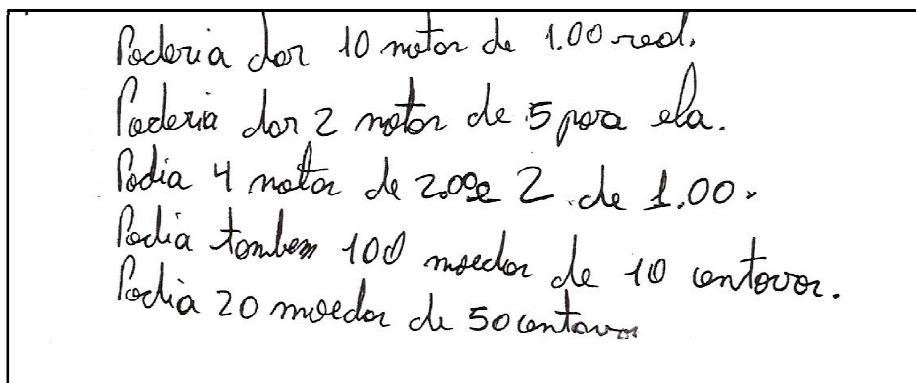 Poderia dar 10 notas de 1.00 real.
Poderia dar 2 notas de 5 para ela.
Podia 4 notas de 2.00 e 2 de 1.00.
Podia tambem 100 moedas de 10 centavos.
Podia 20 moedas de 50 centavos